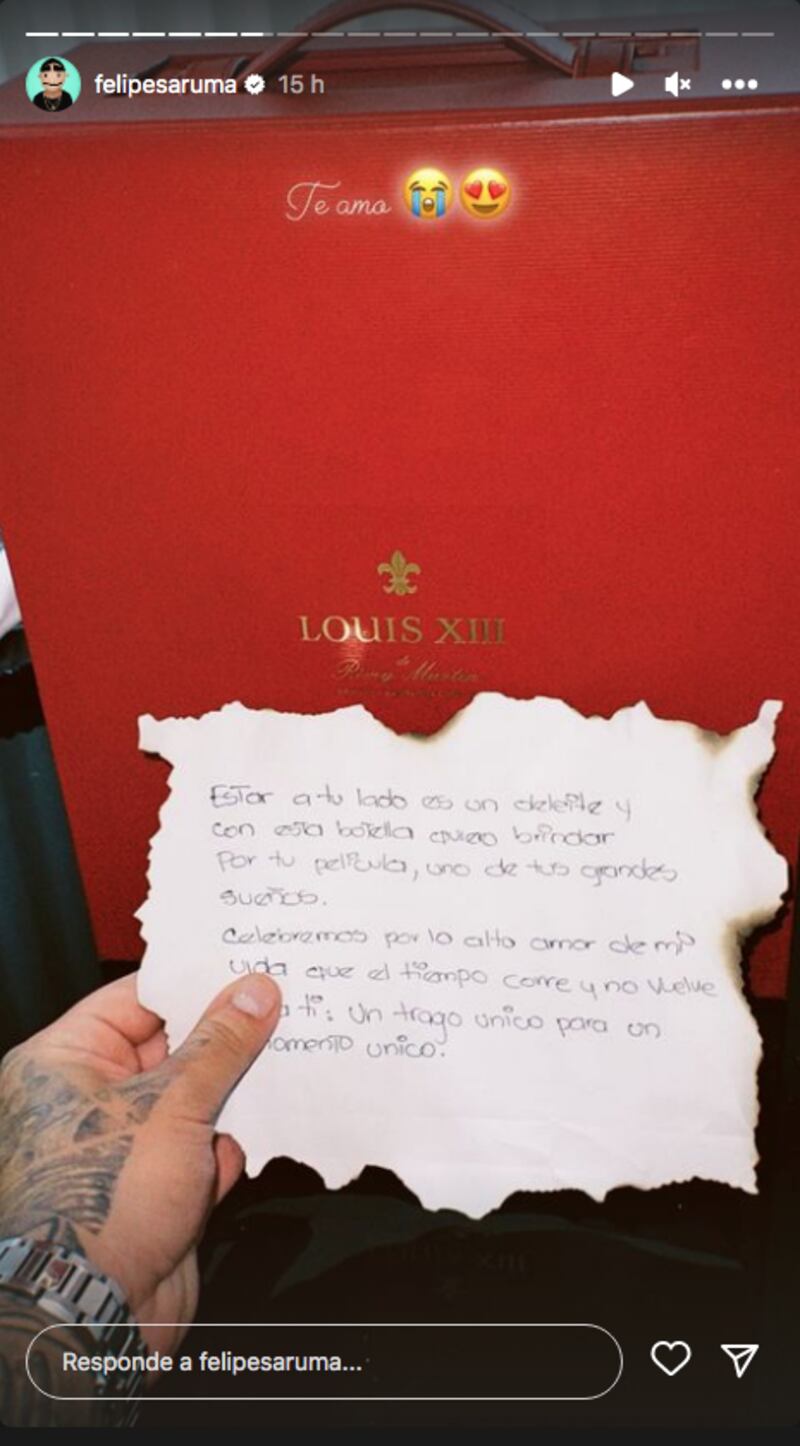 felipesaruma 15 h
Te amo 😭😍
LOUIS XIII
de
Rémy Martin
Estar a tu lado es un deleite y
con esta botella quiero brindar
Por tu película, uno de tus grandes
sueños.
Celebremos por lo alto amor de mi
vida que el tiempo corre y no vuelve
a ti: Un trago unico para un
omento unico.
Responde a felipesaruma...